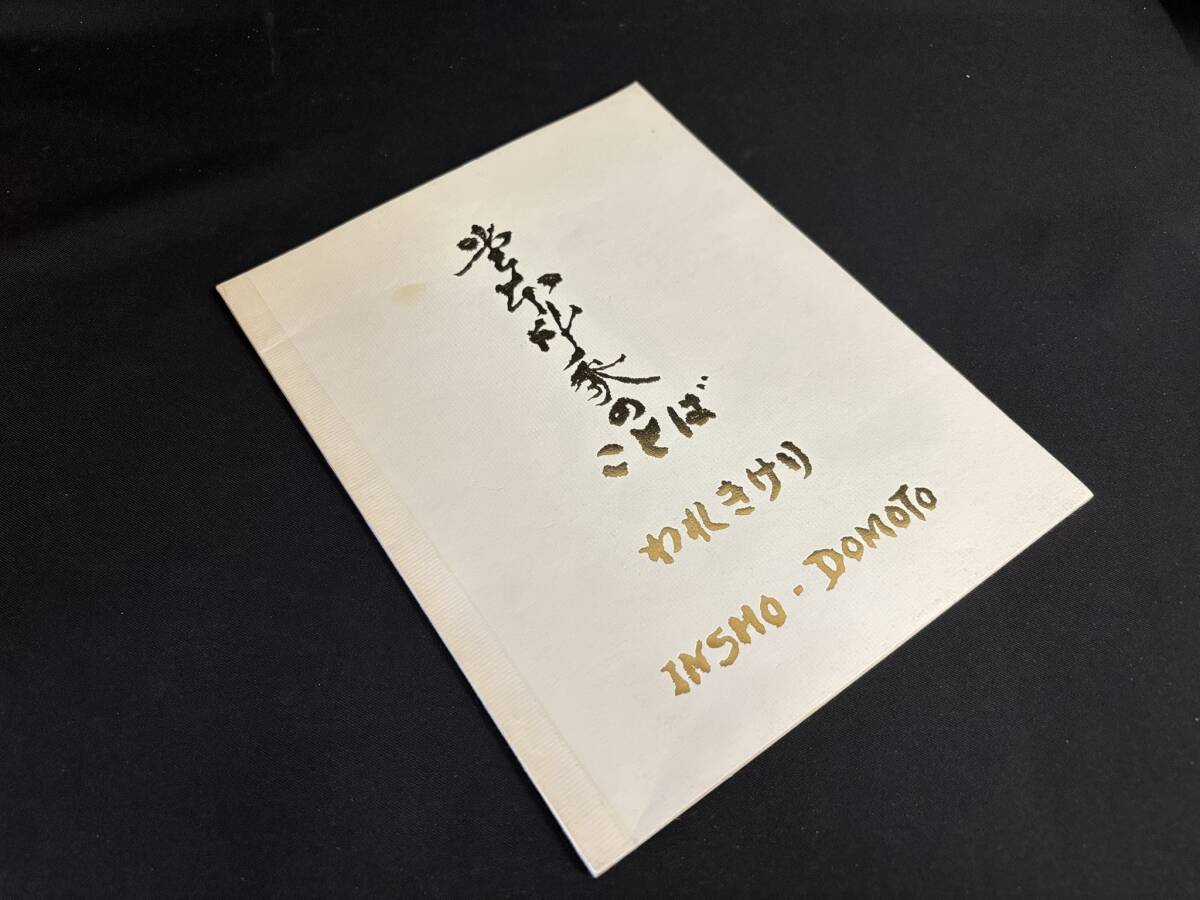 堂本印象の
ことば
われきけり
INSHO - DOMOTO